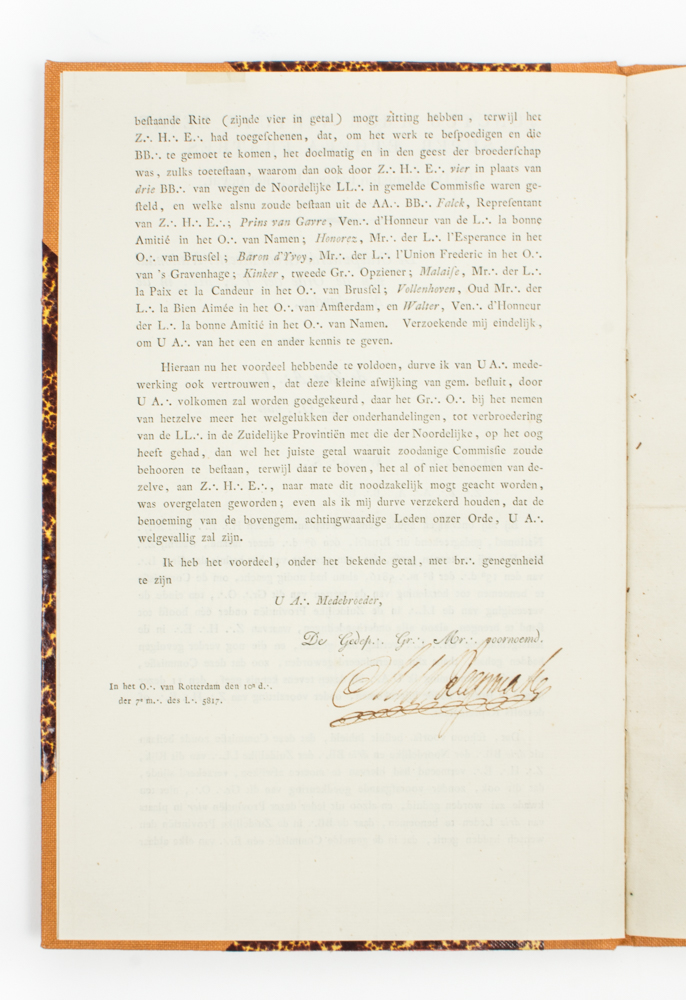 beſtaande Rite (zijnde vier in getal) mogt zitting hebben, terwijl het
Z.·. H.·. E.·. had toegeſchenen, dat, om het werk te beſpoedigen en die
BB.·. te gemoet te komen, het doelmatig en in den geest der broederſchap
was, zulks toeteſtaan, waarom dan ook door Z.·. H.·. E.·. vier in plaats van
drie BB.·. van wegen de Noordelijke LL.·. in gemelde Commisſie waren ge-
ſteld, en welke alsnu zoude beſtaan uit de AA.·. BB.·. Falck, Repreſentant
van Z.·. H.·. E.·.; Prins van Gavre, Ven.·. d'Honneur van de L.·. la bonne
Amitié in het O.·. van Namen; Honorez, Mr.·. der L.·. l'Esperance in het
O.·. van Brusſel; Baron d'Yvoy, Mr.·. der L.·. l'Union Frederic in het O.·.
van 's Gravenhage; Kinker, tweede Gr.·. Opziener; Malaiſe, Mr.·. der L.·.
la Paix et la Candeur in het O.·. van Brusſel; Vollenhoven, Oud Mr.·. der
L.·. la Bien Aimée in het O.·. van Amſterdam, en Walter, Ven.·. d'Honneur
der L.·. la bonne Amitié in het O.·. van Namen. Verzoekende mij eindelijk,
om U A.·. van het een en ander kennis te geven.
Hieraan nu het voordeel hebbende te voldoen, durve ik van U A.·. mede-
werking ook vertrouwen, dat deze kleine afwijking van gem. beſluit, door
U A.·. volkomen zal worden goedgekeurd, daar het Gr.·. O.·. bij het nemen
van hetzelve meer het welgelukken der onderhandelingen, tot verbroedering
van de LL.·. in de Zuidelijke Provintiën met die der Noordelijke, op het oog
heeft gehad, dan wel het juiste getal waaruit zoodanige Commisſie zoude
behooren te beſtaan, terwijl daar te boven, het al of niet benoemen van de-
zelve, aan Z.·. H.·. E.·., naar mate dit noodzakelijk mogt geacht worden,
was overgelaten geworden; even als ik mij durve verzekerd houden, dat de
benoeming van de bovengem. achtingwaardige Leden onzer Orde, U A.·.
welgevallig zal zijn.
Ik heb het voordeel, onder het bekende getal, met br.·. genegenheid
te zijn
U A.·. Medebroeder,
De Gedep.·. Gr.·. Mr.·. voornoemd.
In het O.·. van Rotterdam den 10e d.·.
der 7e m.·. des L.·. 5817.